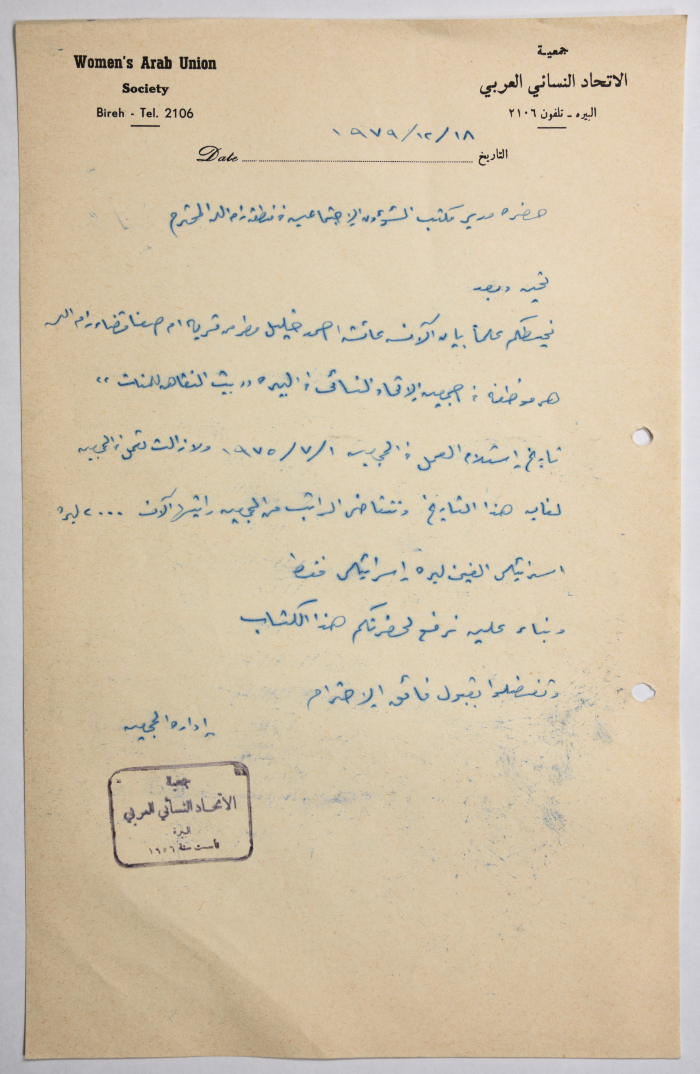 Women's Arab Union
Society
Bireh - Tel. 2106
جمعية
الاتحاد النسائي العربي
البيره - تلفون ٢١٠٦
Date ١٩٧٩/١٢/١٨ التاريخ
حضرة مدير مكتب الشؤون الاجتماعيه منطقة رام الله المحترم
تحيه وبعد
نحيطكم علماً بان الآنسه عائشه احمد خليل من قريه ام صفا قضاء رام الله
هي موظفه في جمعيه الاتحاد النسائي في البيره "بيت النقاهه للمنات"
تاريخ استلام العمل في الجمعيه ١/٧/١٩٧٥ ولا زالت تعمل في الجمعيه
لغايه هذا التاريخ وتتقاضى الراتب من الجمعيه راتبها الآن ٢٠٠٠ ليره
اسرائيلي الفين ليرة إسرائيلي فقط
وبناء عليه نرفع لحضرتكم هذا الكتاب
وتفضلوا بقبول فائق الاحترام
إدارة الجمعيه
جمعية
الاتحاد النسائي العربي
البيرة
تأسست سنة ١٩٥٦